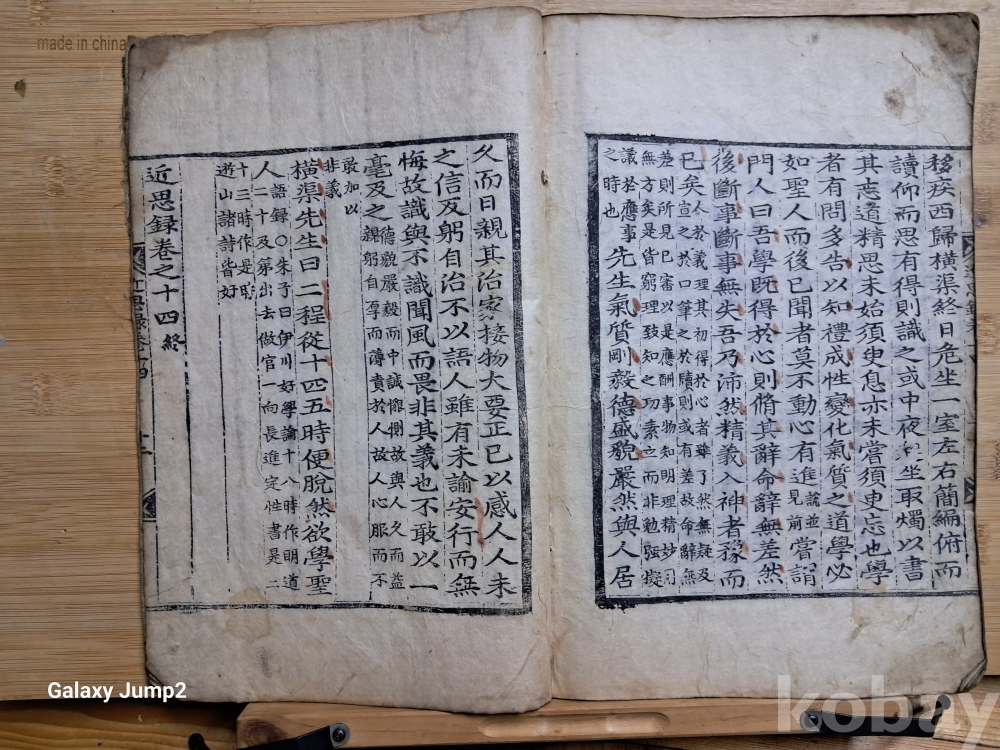 made in china
移疾西歸橫渠終日危坐一室左右簡編俯而
讀仰而思有得則識之或中夜起坐取燭以書
其志道精思未始須臾息亦未嘗須臾忘也學
者有問多告以知禮成性變化氣質之道學必
如聖人而後已聞者莫不動心有進說並見前嘗謂
門人曰吾學既得於心則脩其辭命辭無差然
後斷事斷事無失吾乃沛然精義入神者豫而
已矣人於義理其初得於心者雖了然無疑及
宣之於口筆之於牘則或有差故命辭無
差則所見已審以是應酬事物知明理精妙用
無方矣是皆窮理致知之功素立而非勉強擬
議於應事
之時也先生氣質剛毅德盛貌嚴然與人居
久而日親其治家接物大要正己以感人人未
之信反躬自治不以語人雖有未諭安行而無
悔故識與不識聞風而畏非其義也不敢以一
毫及之德貌嚴毅而中誠懇惻故與人久而益
親躬自厚而薄責於人故人心服而不
敢加以
非義
橫渠先生曰二程從十四五時便脫然欲學聖
人語錄○朱子曰伊川好學論十八時作明道
二十及第出去做官一向長進定性書是二
十三時作是時
遊山諸詩皆好
近思錄卷之十四終
Galaxy Jump2
kobay